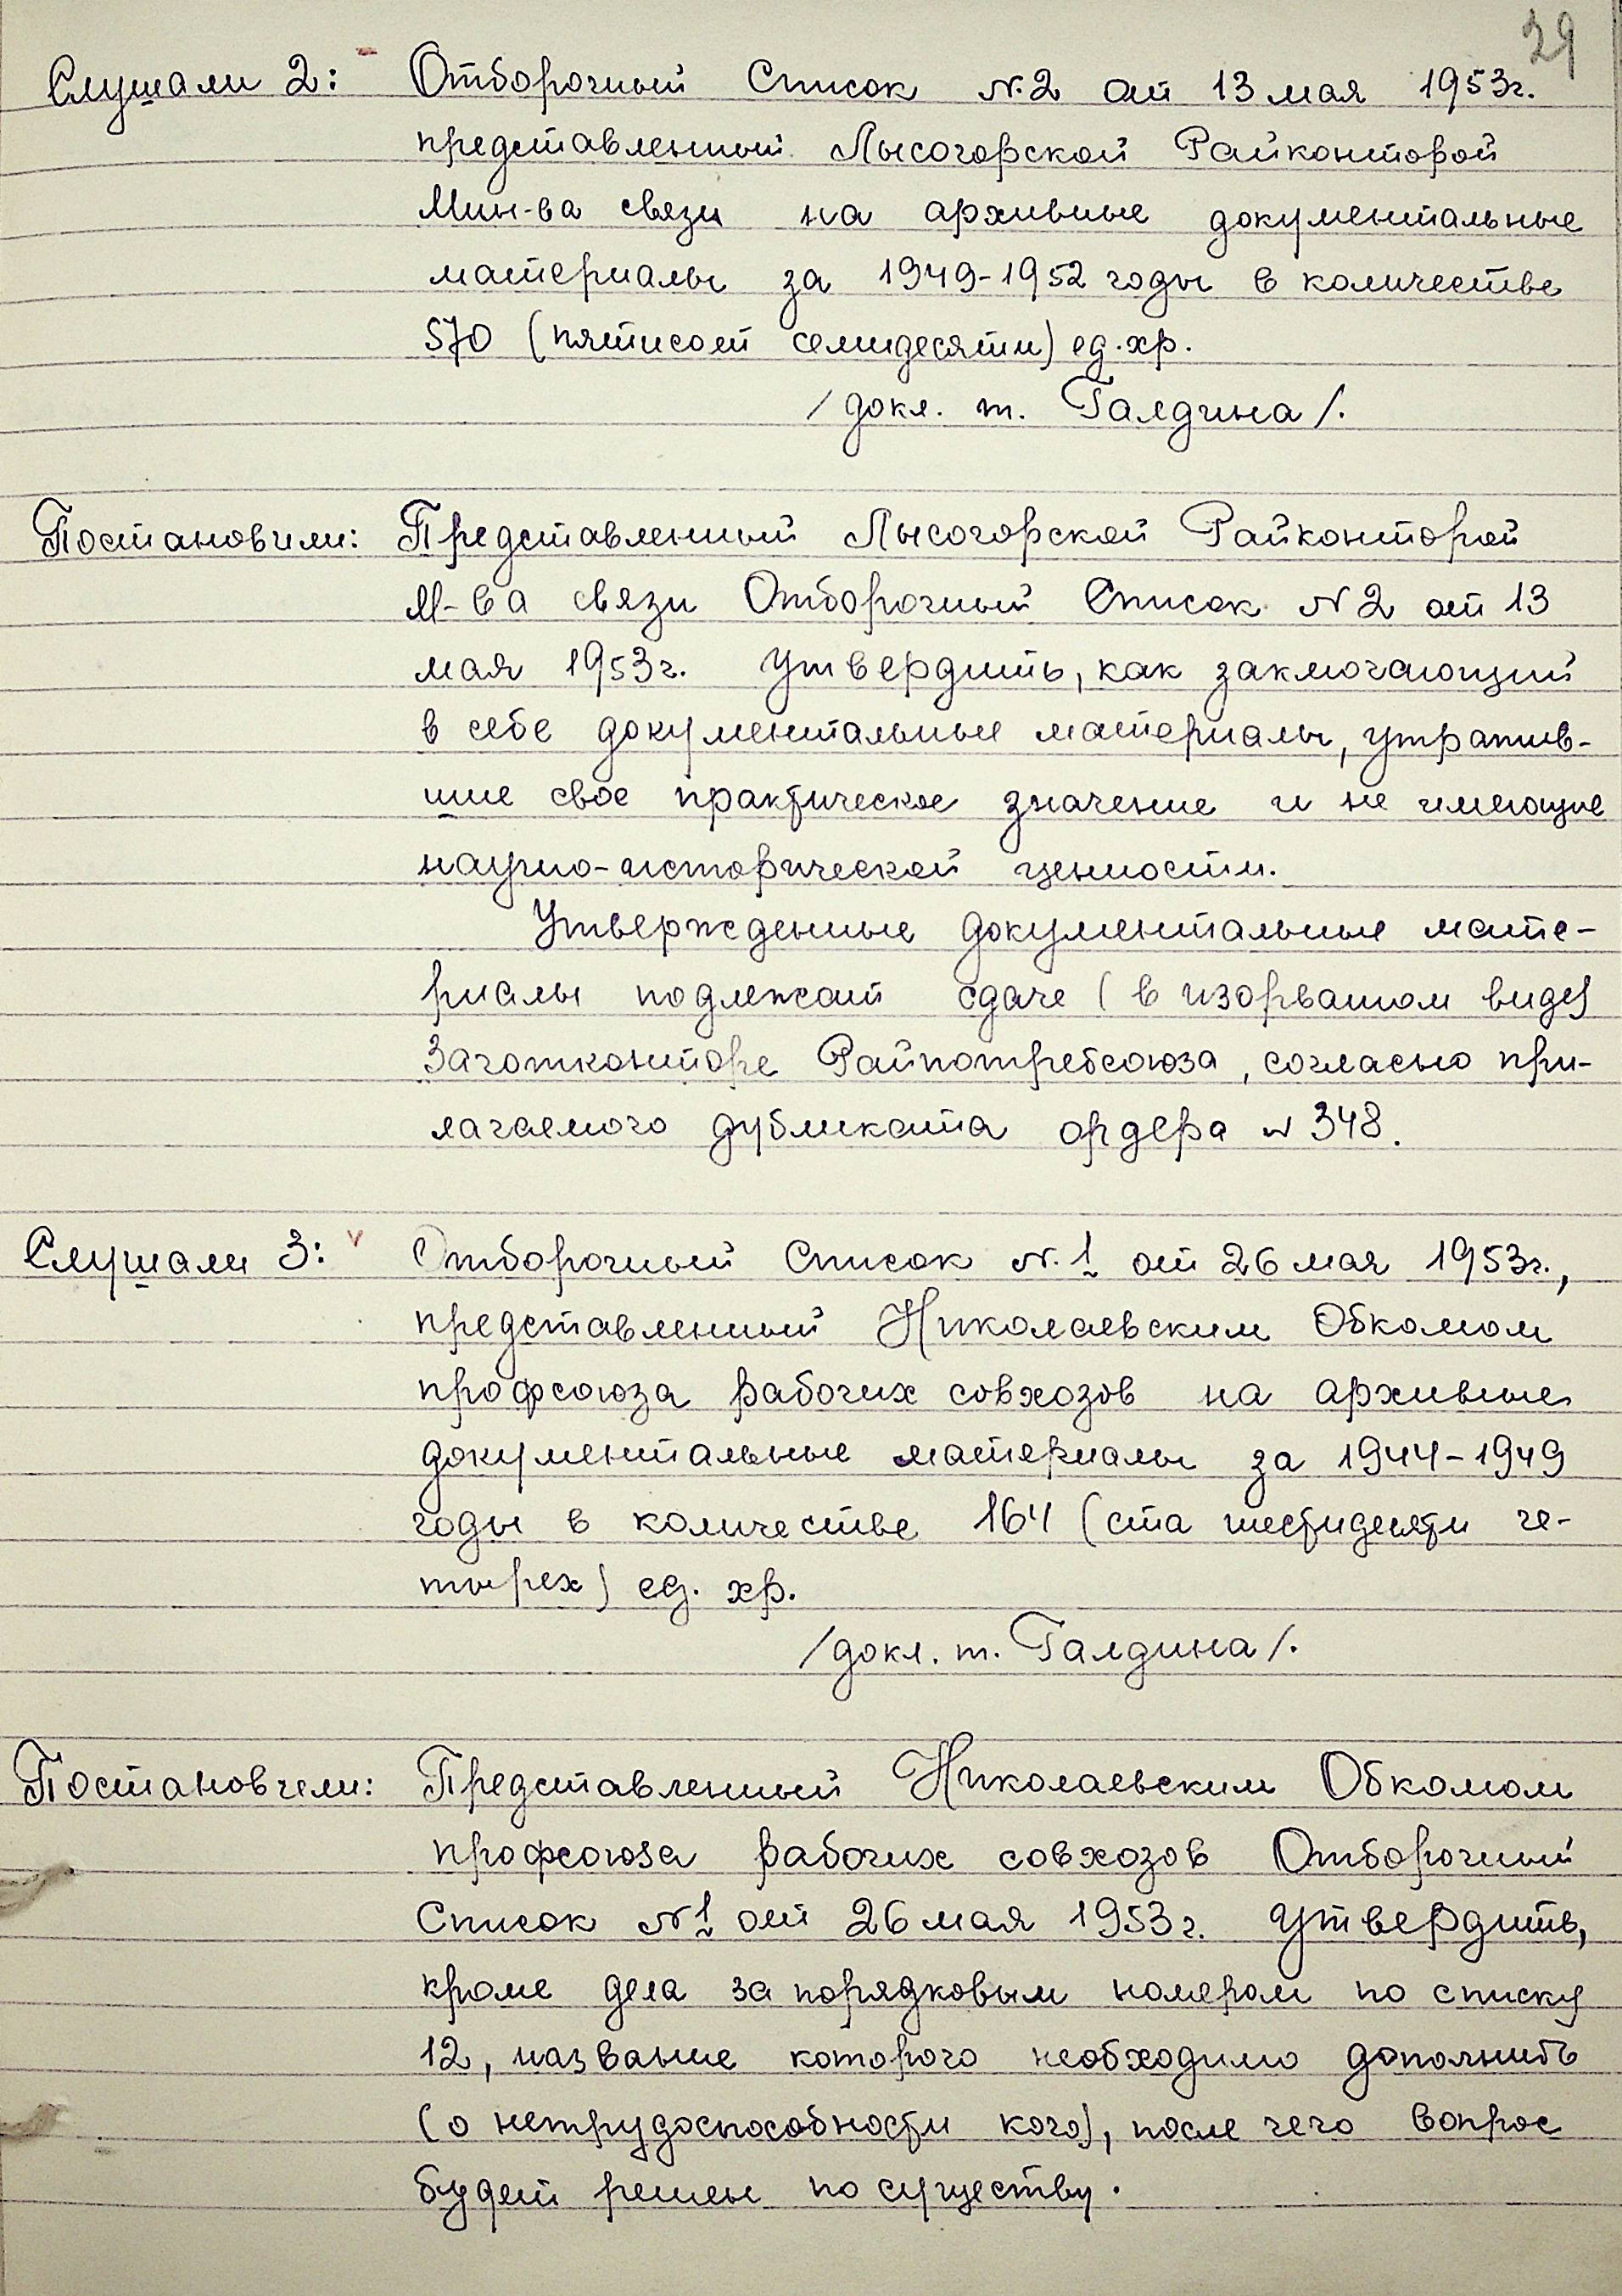 29
Слушали 2: Отборочный Список N.2 от 13 мая 1953г.
представленный Лысогорской Райконторой
Мин-ва связи на архивные документальные
материалы за 1949-1952 годы в количестве
570 (пятисот семидесяти) ед.хр.
/докл. т. Галдина/.
Постановили: Представленный Лысогорской Райконторой
М-ва связи Отборочный Список N2 от 13
мая 1953г. Утвердить, как заключающий
в себе документальные материалы, утратив-
шие свое практическое значение и не имеющие
научно-исторической ценности.
Утвержденные документальные мате-
риалы подлежат сдаче (в изорванном виде)
Заготконторе Райпотребсоюза, согласно при-
лагаемого дубликата ордера N348.
Слушали 3: Отборочный Список N.1 от 26 мая 1953г.,
представленный Николаевским Обкомом
профсоюза рабочих совхозов на архивные
документальные материалы за 1944-1949
годы в количестве 164 (ста шестидесяти че-
тырех) ед. хр.
/докл. т. Галдина/.
Постановили: Представленный Николаевским Обкомом
профсоюза рабочих совхозов Отборочный
Список N1 от 26 мая 1953г. Утвердить,
кроме дела за порядковым номером по списку
12, название которого необходимо дополнить
(о нетрудоспособности кого), после чего вопрос
будет решен по существу.